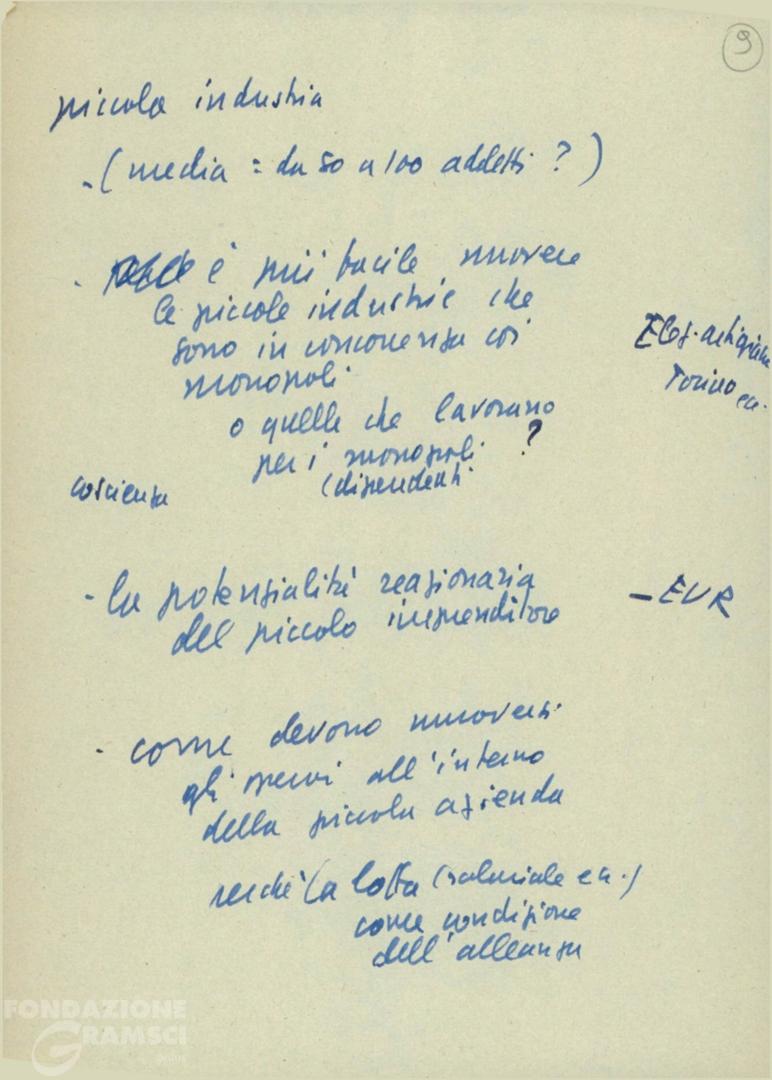 9
piccola industria
- (media = da 50 a 100 addetti ?)
- è più facile muovere
le piccole industrie che
sono in concorrenza coi
monopoli
o quelle che lavorano
per i monopoli ?
(dipendenti
coscienza
Elez. artigiane
Torino ecc.
- la potenzialità reazionaria
del piccolo imprenditore
- EUR
- come devono muoversi
gli operai all'interno
della piccola azienda
perché la lotta (salariale ecc.)
come condizione
dell'alleanza
FONDAZIONE
GRAMSCI